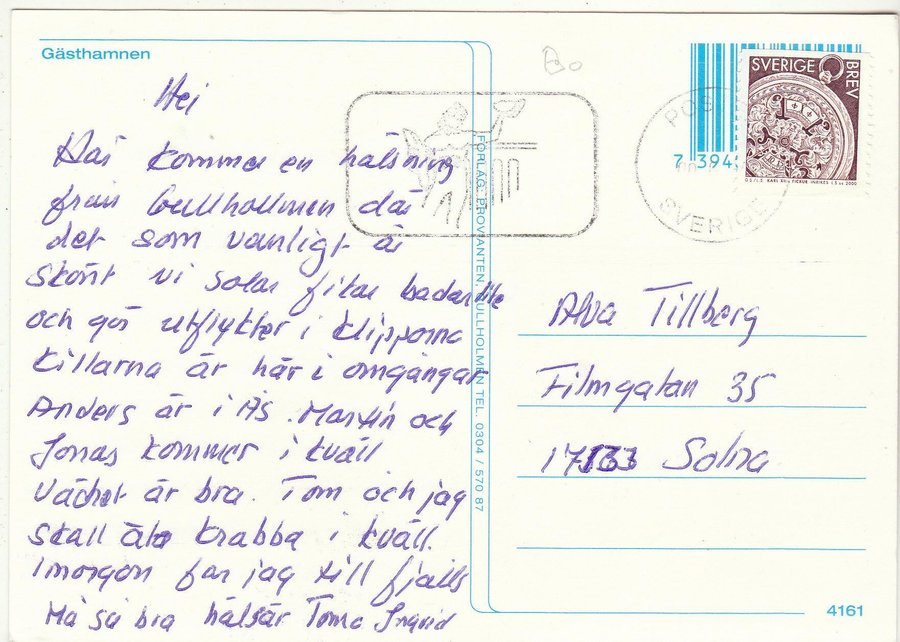 Gästhamnen
Hei
Här kommer en hälsning
från Gullholmen där
det som vanligt är
skönt vi solar fikar badar lite
och gör utflykter i klipporna
killarna är här i omgångar
Anders är i Ås. Martin och
Jonas kommer i kväll
Vädret är bra. Tom och jag
skall äta krabba i kväll.
imorgon far jag till fjälls
Må så bra hälsar Tom o Ingrid
FÖRLAG: PROVIANTEN, GULLHOLMEN TEL. 0304 / 570 87
7 394
SVERIGE BREV
KARL XII:s FICKUR INRIKES
2000
POST
SVERIGE
Alva Tillberg
Filmgatan 35
Solna
4161